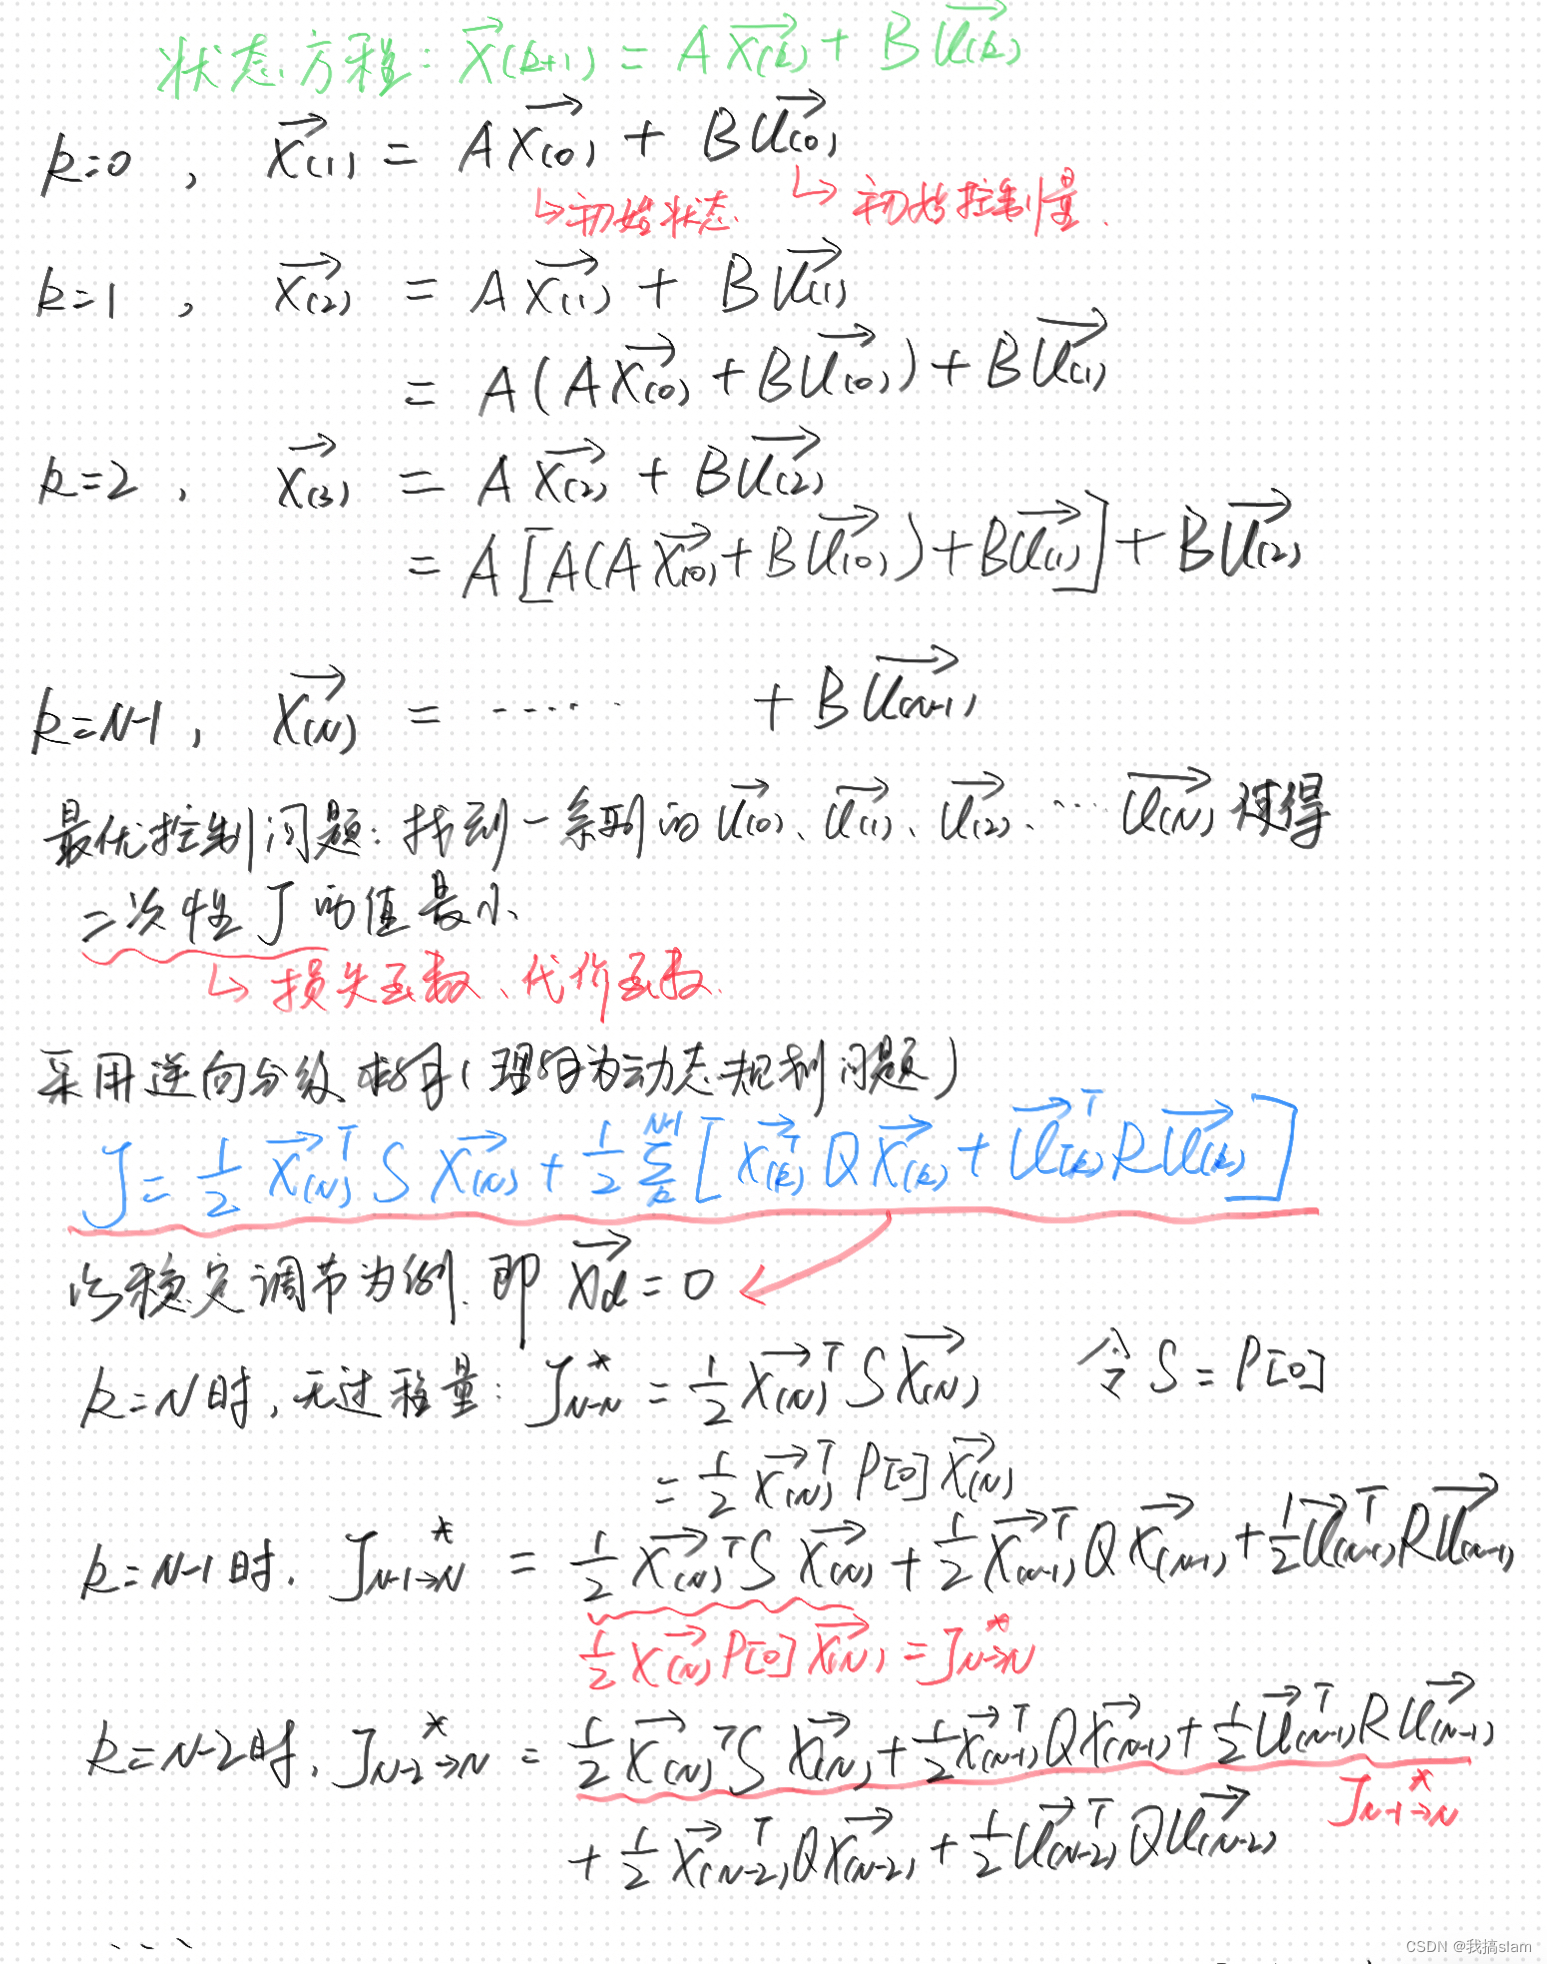 状态方程: X⃗(k+1) = AX⃗(k) + BU⃗(k)
k=0, X⃗(1) = AX⃗(0) + BU⃗(0)
↳初始状态. ↳初始控制量.
k=1, X⃗(2) = AX⃗(1) + BU⃗(1)
= A(AX⃗(0) + BU⃗(0)) + BU⃗(1)
k=2, X⃗(3) = AX⃗(2) + BU⃗(2)
= A[A(AX⃗(0) + BU⃗(0)) + BU⃗(1)] + BU⃗(2)
k=N-1, X⃗(N) = ······ + BU⃗(N-1)
最优控制问题: 找到一系列的U⃗(0)、U⃗(1)、U⃗(2)、…U⃗(N) 使得
二次性J的值最小
↳ 损失函数、代价函数.
采用逆向分级求解(理解为动态规划问题)
J = 1/2 X⃗(N)ᵀ S X⃗(N) + 1/2 Σ_k^{N-1} [X⃗(k)ᵀ Q X⃗(k) + U⃗(k)ᵀ R U⃗(k)]
以稳定调节为例. 即 X⃗d = 0
k=N时, 无过程量: J*N→N = 1/2 X⃗(N)ᵀ S X⃗(N) 令 S = P[0]
= 1/2 X⃗(N)ᵀ P[0] X⃗(N)
k=N-1时. J*N-1→N = 1/2 X⃗(N)ᵀ S X⃗(N) + 1/2 X⃗(N-1)ᵀ Q X⃗(N-1) + 1/2 U⃗(N-1)ᵀ R U⃗(N-1)
1/2 X⃗(N) P[0] X⃗(N) = J*N→N
k=N-2时. J*N-2→N = 1/2 X⃗(N)ᵀ S X⃗(N) + 1/2 X⃗(N-1)ᵀ Q X⃗(N-1) + 1/2 U⃗(N-1)ᵀ R U⃗(N-1)
J*N-1→N
+ 1/2 X⃗(N-2)ᵀ Q X⃗(N-2) + 1/2 U⃗(N-2)ᵀ Q U⃗(N-2)
...
CSDN @我搞slam